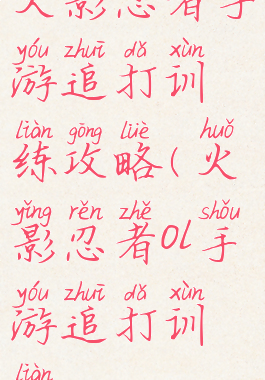 火影忍者手
yóu zhuī dǎ xùn
游追打训
liàn gōng lüè huǒ
练攻略(火
yǐng rěn zhě shǒu
影忍者ol手
yóu zhuī dǎ xùn
游追打训
liàn